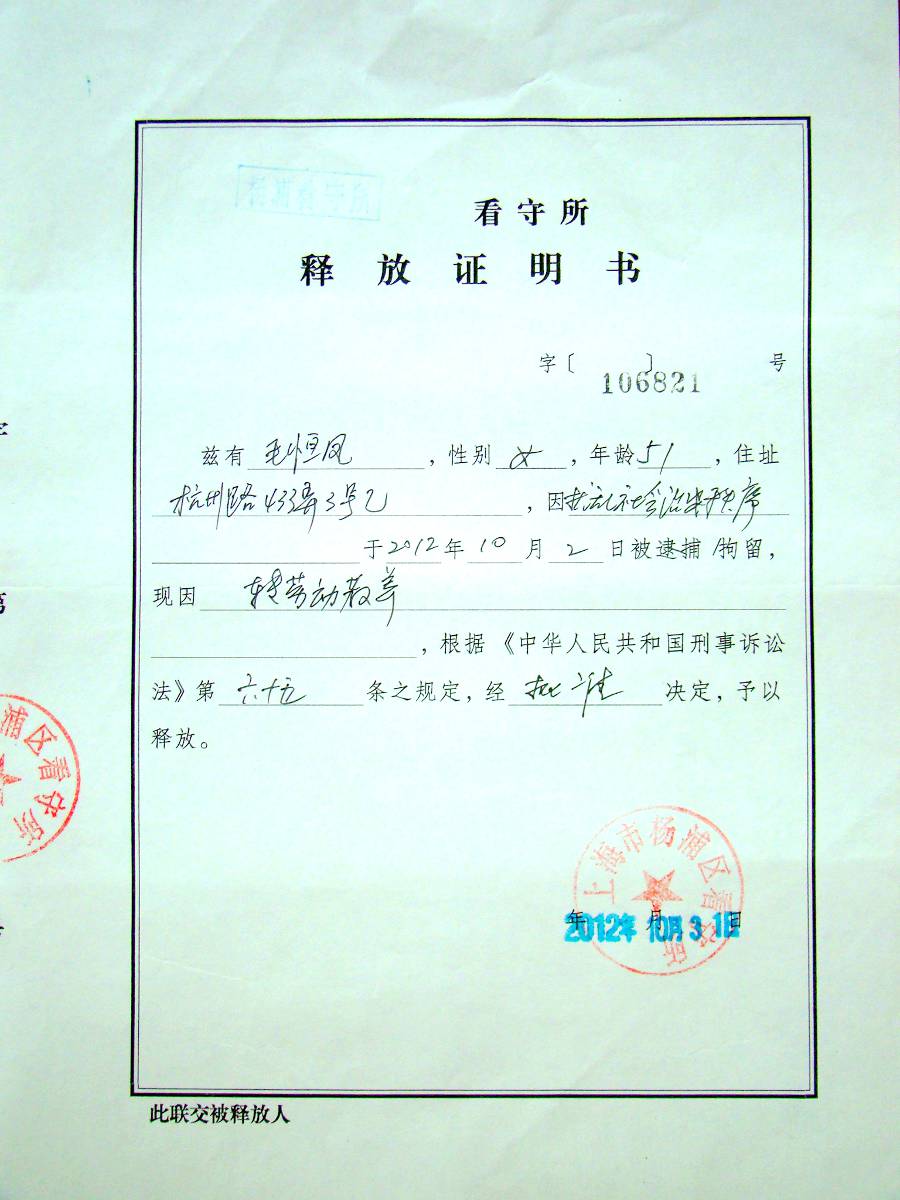 杨浦看守所
看守所
释放证明书
字〔 〕 号
106821
兹有 毛恒凤 ，性别 女 ，年龄 51 ，住址
杭州路433弄3号乙 ，因 扰乱社会治安秩序
于2012年 10 月 2 日被逮捕/拘留，
现因 转劳动教养
，根据《中华人民共和国刑事诉讼
法》第 六十五 条之规定，经 批准 决定，予以
释放。
上海市杨浦区看守所
年 月 日
2012年10月31日
此联交被释放人
浦区看守所